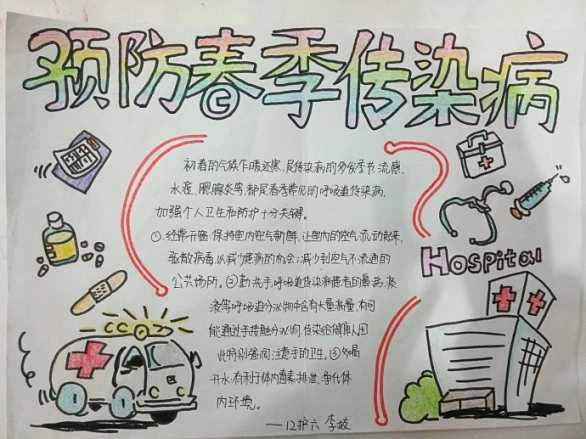 预防春季传染病
初春的气候乍暖还寒,是传染病的多发季节,流感、
水痘、腮腺炎等,都是春季常见的呼吸道传染病,
加强个人卫生和防护十分关键。
①经常开窗,保持室内空气新鲜,让室内的空气流动起来,
驱散病毒以减少患病的机会;减少到空气不流通的
公共场所。②勤洗手,呼吸道传染病患者的鼻涕、痰
液等呼吸道分泌物中含有大量病毒,有可
能通过手接触分泌物,传染给健康人,因
此特别强调注意手的卫生。③多喝
开水,有利于体内毒素排泄,净化体
内环境。
——12护六 李
Hospital